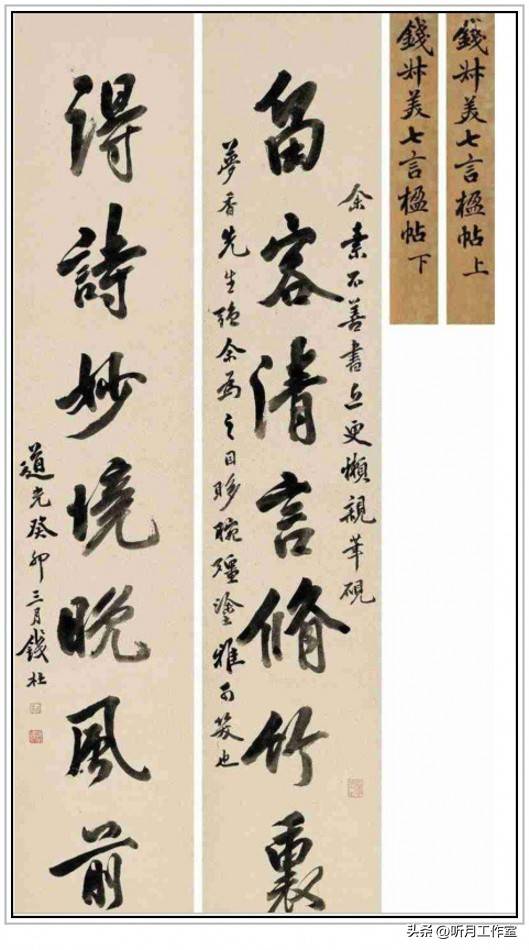 錢叔美七言楹帖上
錢叔美七言楹帖下
余素不善書近更懶親筆硯
留客清言脩竹裏
夢香先生强余爲之目眵腕殭塗雅可笑也
得詩妙境晚風前
道光癸卯三月錢杜
头条 @听月工作室